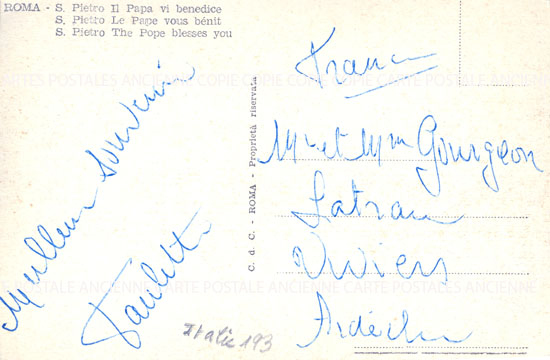 ROMA - S. Pietro Il Papa vi benedice
S. Pietro Le Pape vous bénit
S. Pietro The Pope blesses you
Meilleur souvenir
Paulette
C. d C. - ROMA - Proprietà riservata
France
Mr et Mm Gourgeon
Latrau
Viviers
Ardèche
Italie 193
CARTES POSTALES ANCIENNE COPIE CARTE POSTALES ANCIENNE